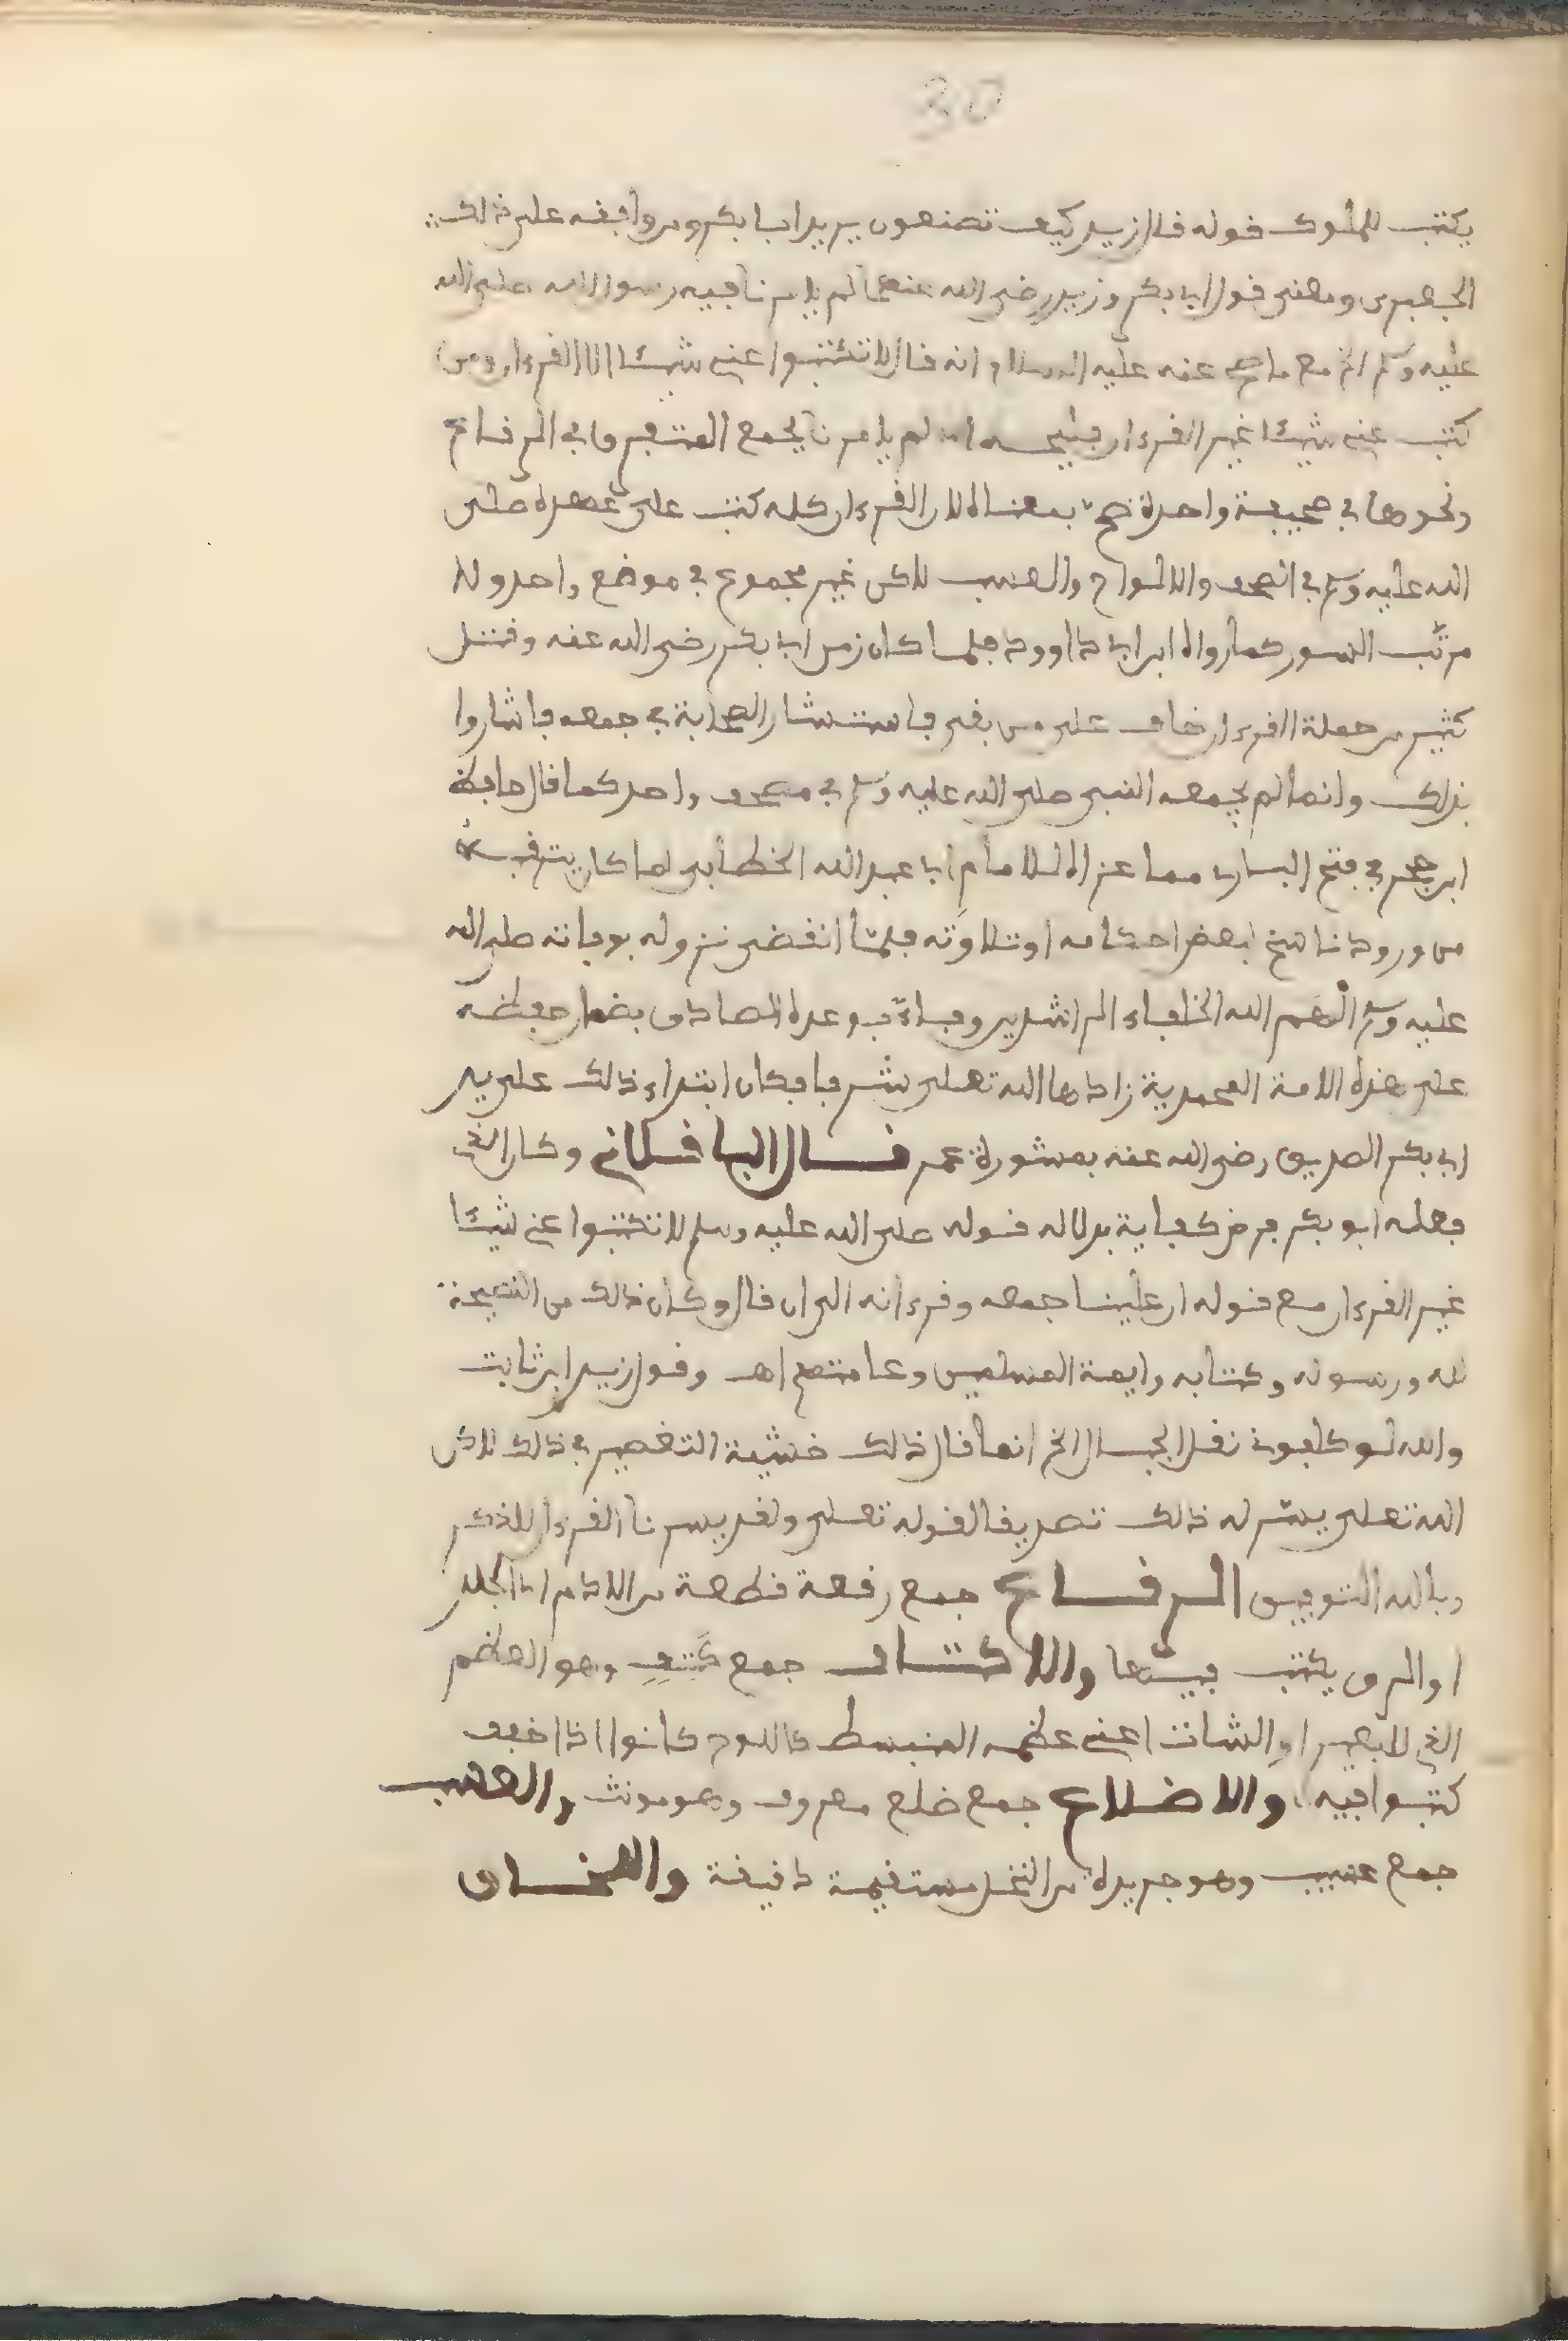 30
يكتب للملوك قوله قال زيد كيف تصنعون يريد ابا بكر ومن وافقه على ذلك
الجعبري ومعنى قول ابي بكر وزيد رضي الله عنهما لم يامرنا فيه رسول الله صلى الله
عليه وسلم الخ مع ما صح عنه عليه السلام انه قال لا تكتبوا عني شيئا الا القرءان ومن
كتب عني شيئا غير القرءان فليمحه انه لم يامرنا بجمع المتفرق في الرقاع
ونحوها في صحيفة واحدة بمعناه لان القرءان كله كتب على عهده صلى
الله عليه وسلم في الصحف والالواح والعسب لاكن غير مجموع في موضع واحد ولا
مرتّب السور كما رواه ابن ابي داوود فلما كان زمن ابي بكر رضي الله عنه وقتل
كثير من حملة القرءان خاف على من بقي فاستشار الصحابة في جمعه فاشاروا
بذلك وانما لم يجمعه النبي صلى الله عليه وسلم في مصحف واحد كما قال الحافظ
ابن حجر في فتح الباري مما عزاه للامام ابي عبد الله الخطابي لما كان يترقبه
من ورود ناسخ لبعض احكامه او تلاوته فلمّا انقضى نزوله بوفاته صلى الله
عليه وسلم الهم الله الخلفاء الراشدين وفاءً بوعده الصادق بضمان حفظه
على هذه الامة المحمدية زادها الله تعلى شرفا فكان ابتداء ذالك على يد
ابي بكر الصديق رضي الله عنه بمشورة عمر قال الباقلاني وكان الذي
فعله ابو بكر فرض كفاية بدلالة قوله صلى الله عليه وسلم لا تكتبوا عني شيئا
غير القرءان مع قوله ان علينا جمعه وقرءانه الى ان قال وكان ذالك من النصيحة
لله ورسوله وكتابه وايمة المسلمين وعامتهم اهـ وقول زيد ابن ثابت
والله لو كلفوني نقل الجبال الخ انما قال ذالك خشية التقصير في ذالك لاكن
الله تعلى يسّر له ذالك تصديقا لقوله تعلى ولقد يسرنا القرءان للذكر
وبالله التوفيق الرقاع جمع رقعة قطعة من الادم اي الجلد
او الرق يكتب فيها والاكتاف جمع كَتِفٍ وهو العظم
الذي للبعير او الشاة اعني عظمه المنبسط كاللوح كانوا اذا خف
كتبوا فيه، والاضلاع جمع ضلع معروف وهو مونث والعسب
جمع عسيب وهو جريدة من النخل مستقيمة دقيقة واللخاف